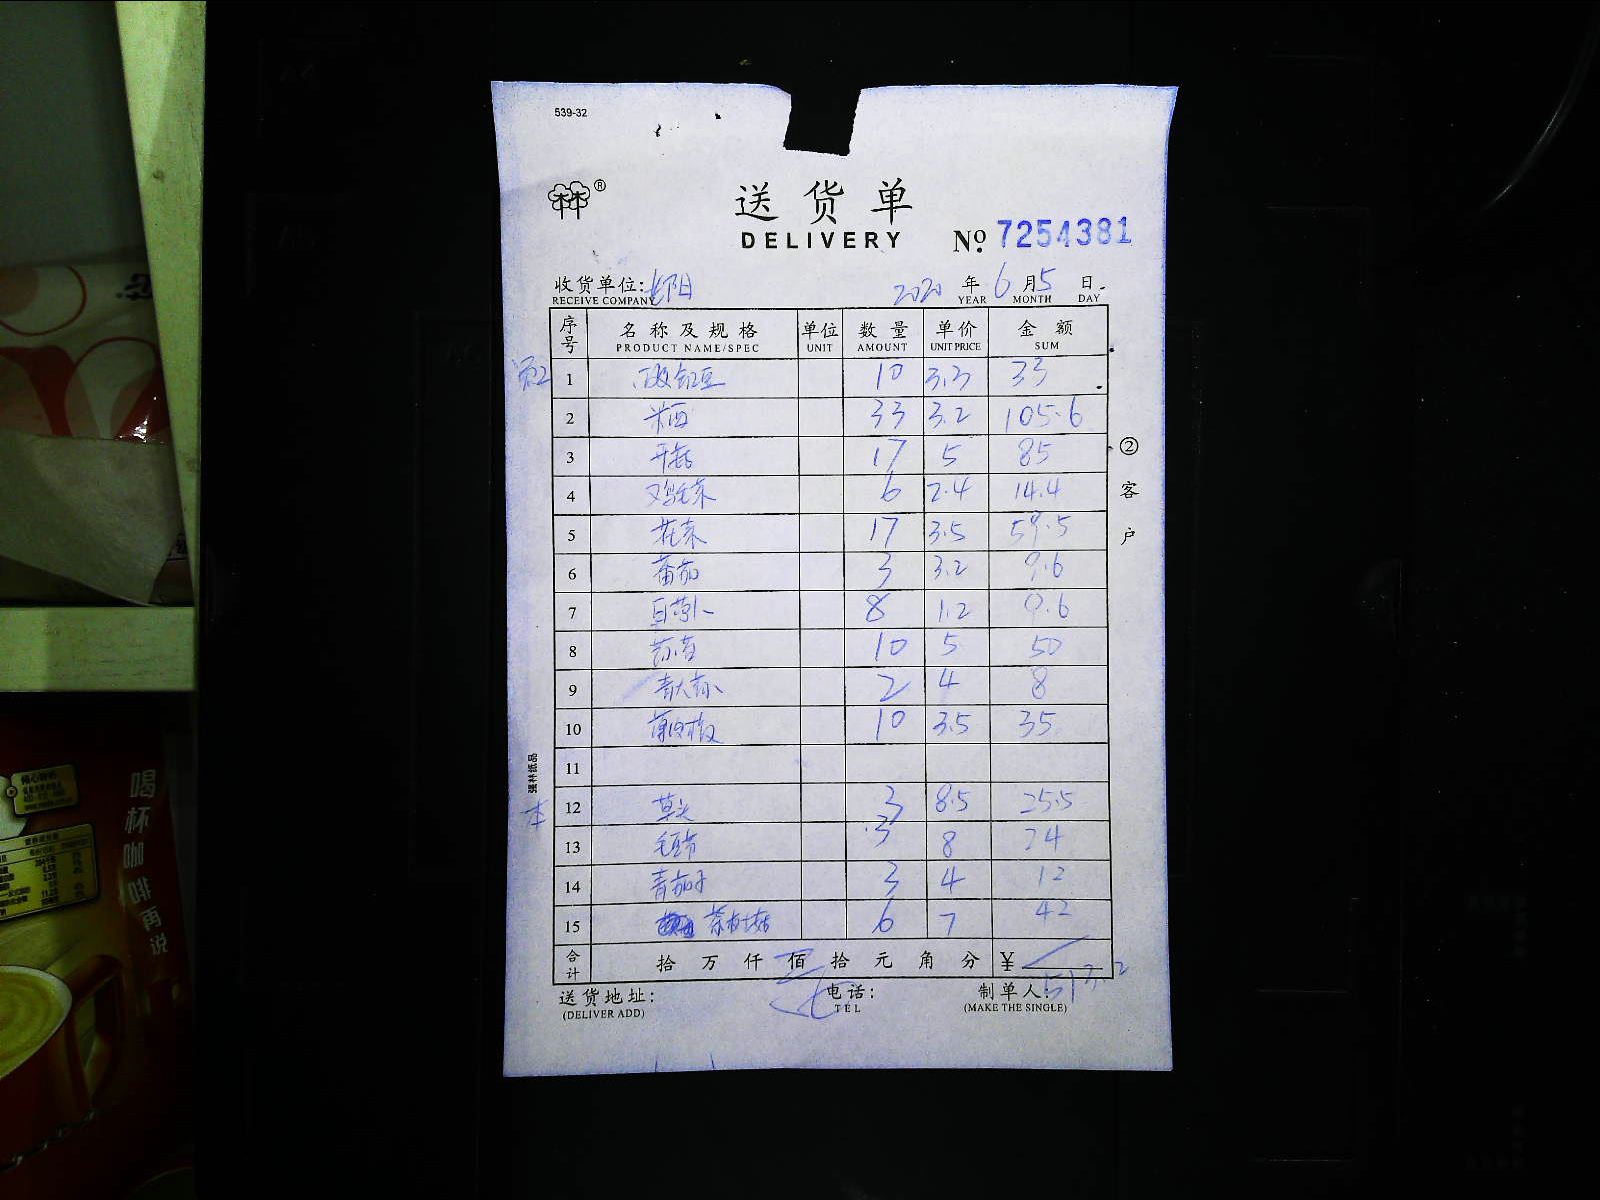 539-32
®
送货单
DELIVERY
№ 7254381
收货单位:
RECEIVE COMPANY
2020 年 6 月 5 日
YEAR MONTH DAY
序号 名称及规格 单位 数量 单价 金额
PRODUCT NAME/SPEC UNIT AMOUNT UNIT PRICE SUM
1 10 3.3 33
2 33 3.2 105.6
3 17 5 85
4 鸡毛菜 6 2.4 14.4
5 花菜 17 3.5 59.5
6 番茄 3 3.2 9.6
7 白萝卜 8 1.2 9.6
8 10 5 50
9 2 4 8
10 10 3.5 35
11
12 草头 3 8.5 25.5
13 3 8 24
14 青茄子 3 4 12
15 茶树菇 6 7 42
合计 拾 万 仟 佰 拾 元 角 分 ¥
513.2
送货地址: 电话: 制单人:
(DELIVER ADD) TEL (MAKE THE SINGLE)
②客户
强林纸品
喝杯咖啡再说